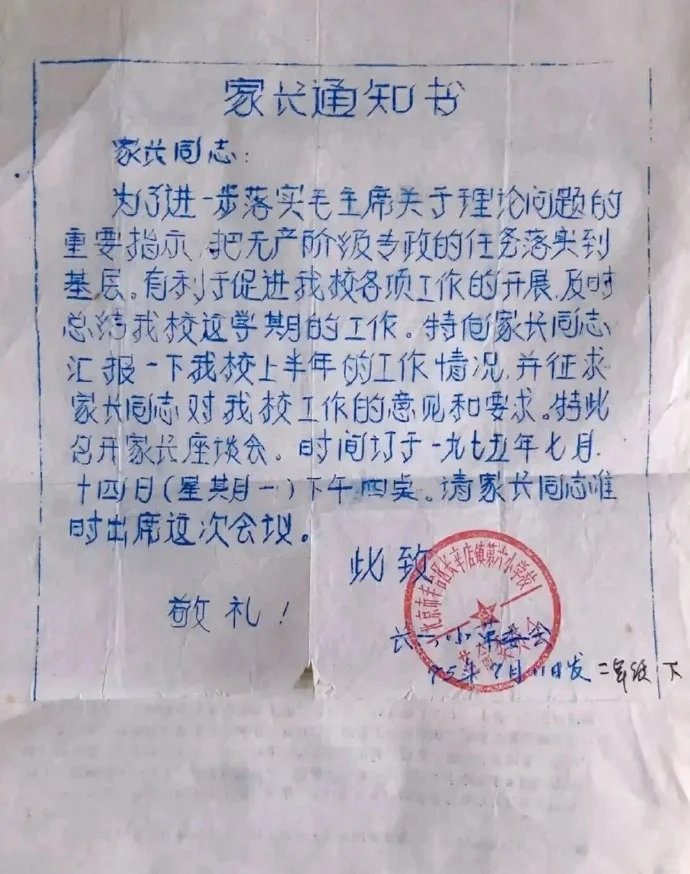 家长通知书
家长同志：
为了进一步落实毛主席关于理论问题的
重要指示，把无产阶级专政的任务落实到
基层。有利于促进我校各项工作的开展，及时
总结我校这学期的工作。特向家长同志
汇报一下我校上半年的工作情况，并征求
家长同志对我校工作的意见和要求。特此
召开家长座谈会。时间订于一九七五年七月
十四日（星其月一）下午四点。请家长同志准
时出席这次会议。
此致
敬礼！
北京市丰台区长辛店镇第六小学校
革命委员会
长六小革委会
75年7月11日发 二年级 下